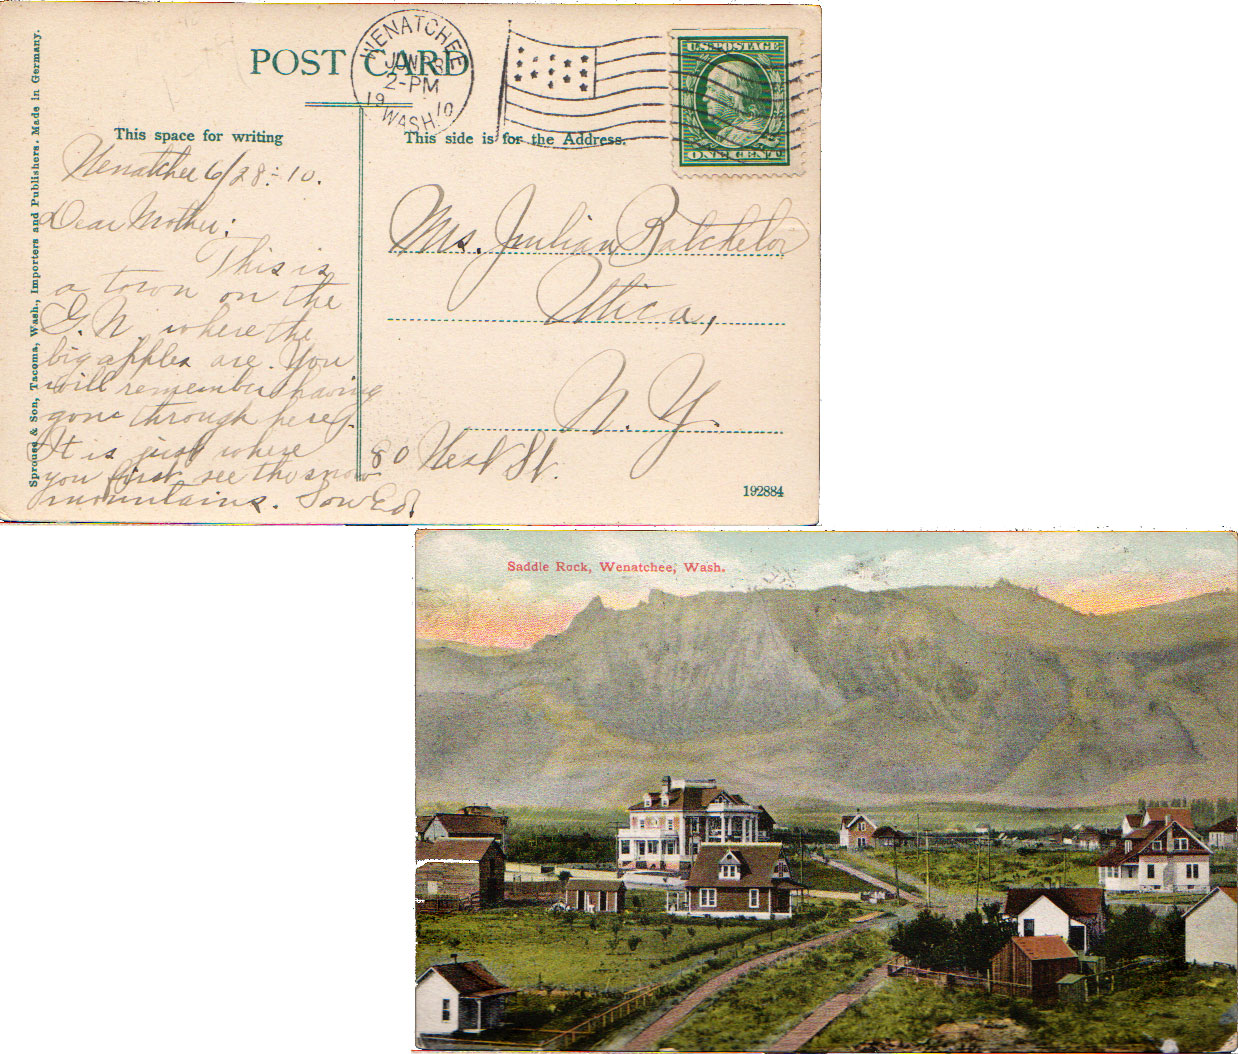 POST CARD
WENATCHEE
JUN
2-PM
19 10
WASH.
U.S. POSTAGE
ONE CENT
This space for writing
This side is for the Address.
Sprouse & Son, Tacoma, Wash., Importers and Publishers. Made in Germany.
Wenatchee 6/28-10.
Dear Mother:
This is
a town on the
G. N. where the
big apples are. You
will remember having
gone through here.
It is just where
you first see the snow
mountains. Son Ed.
Mrs. Julian Batchelor
Utica,
N. Y.
80 West St.
192884
Saddle Rock, Wenatchee, Wash.